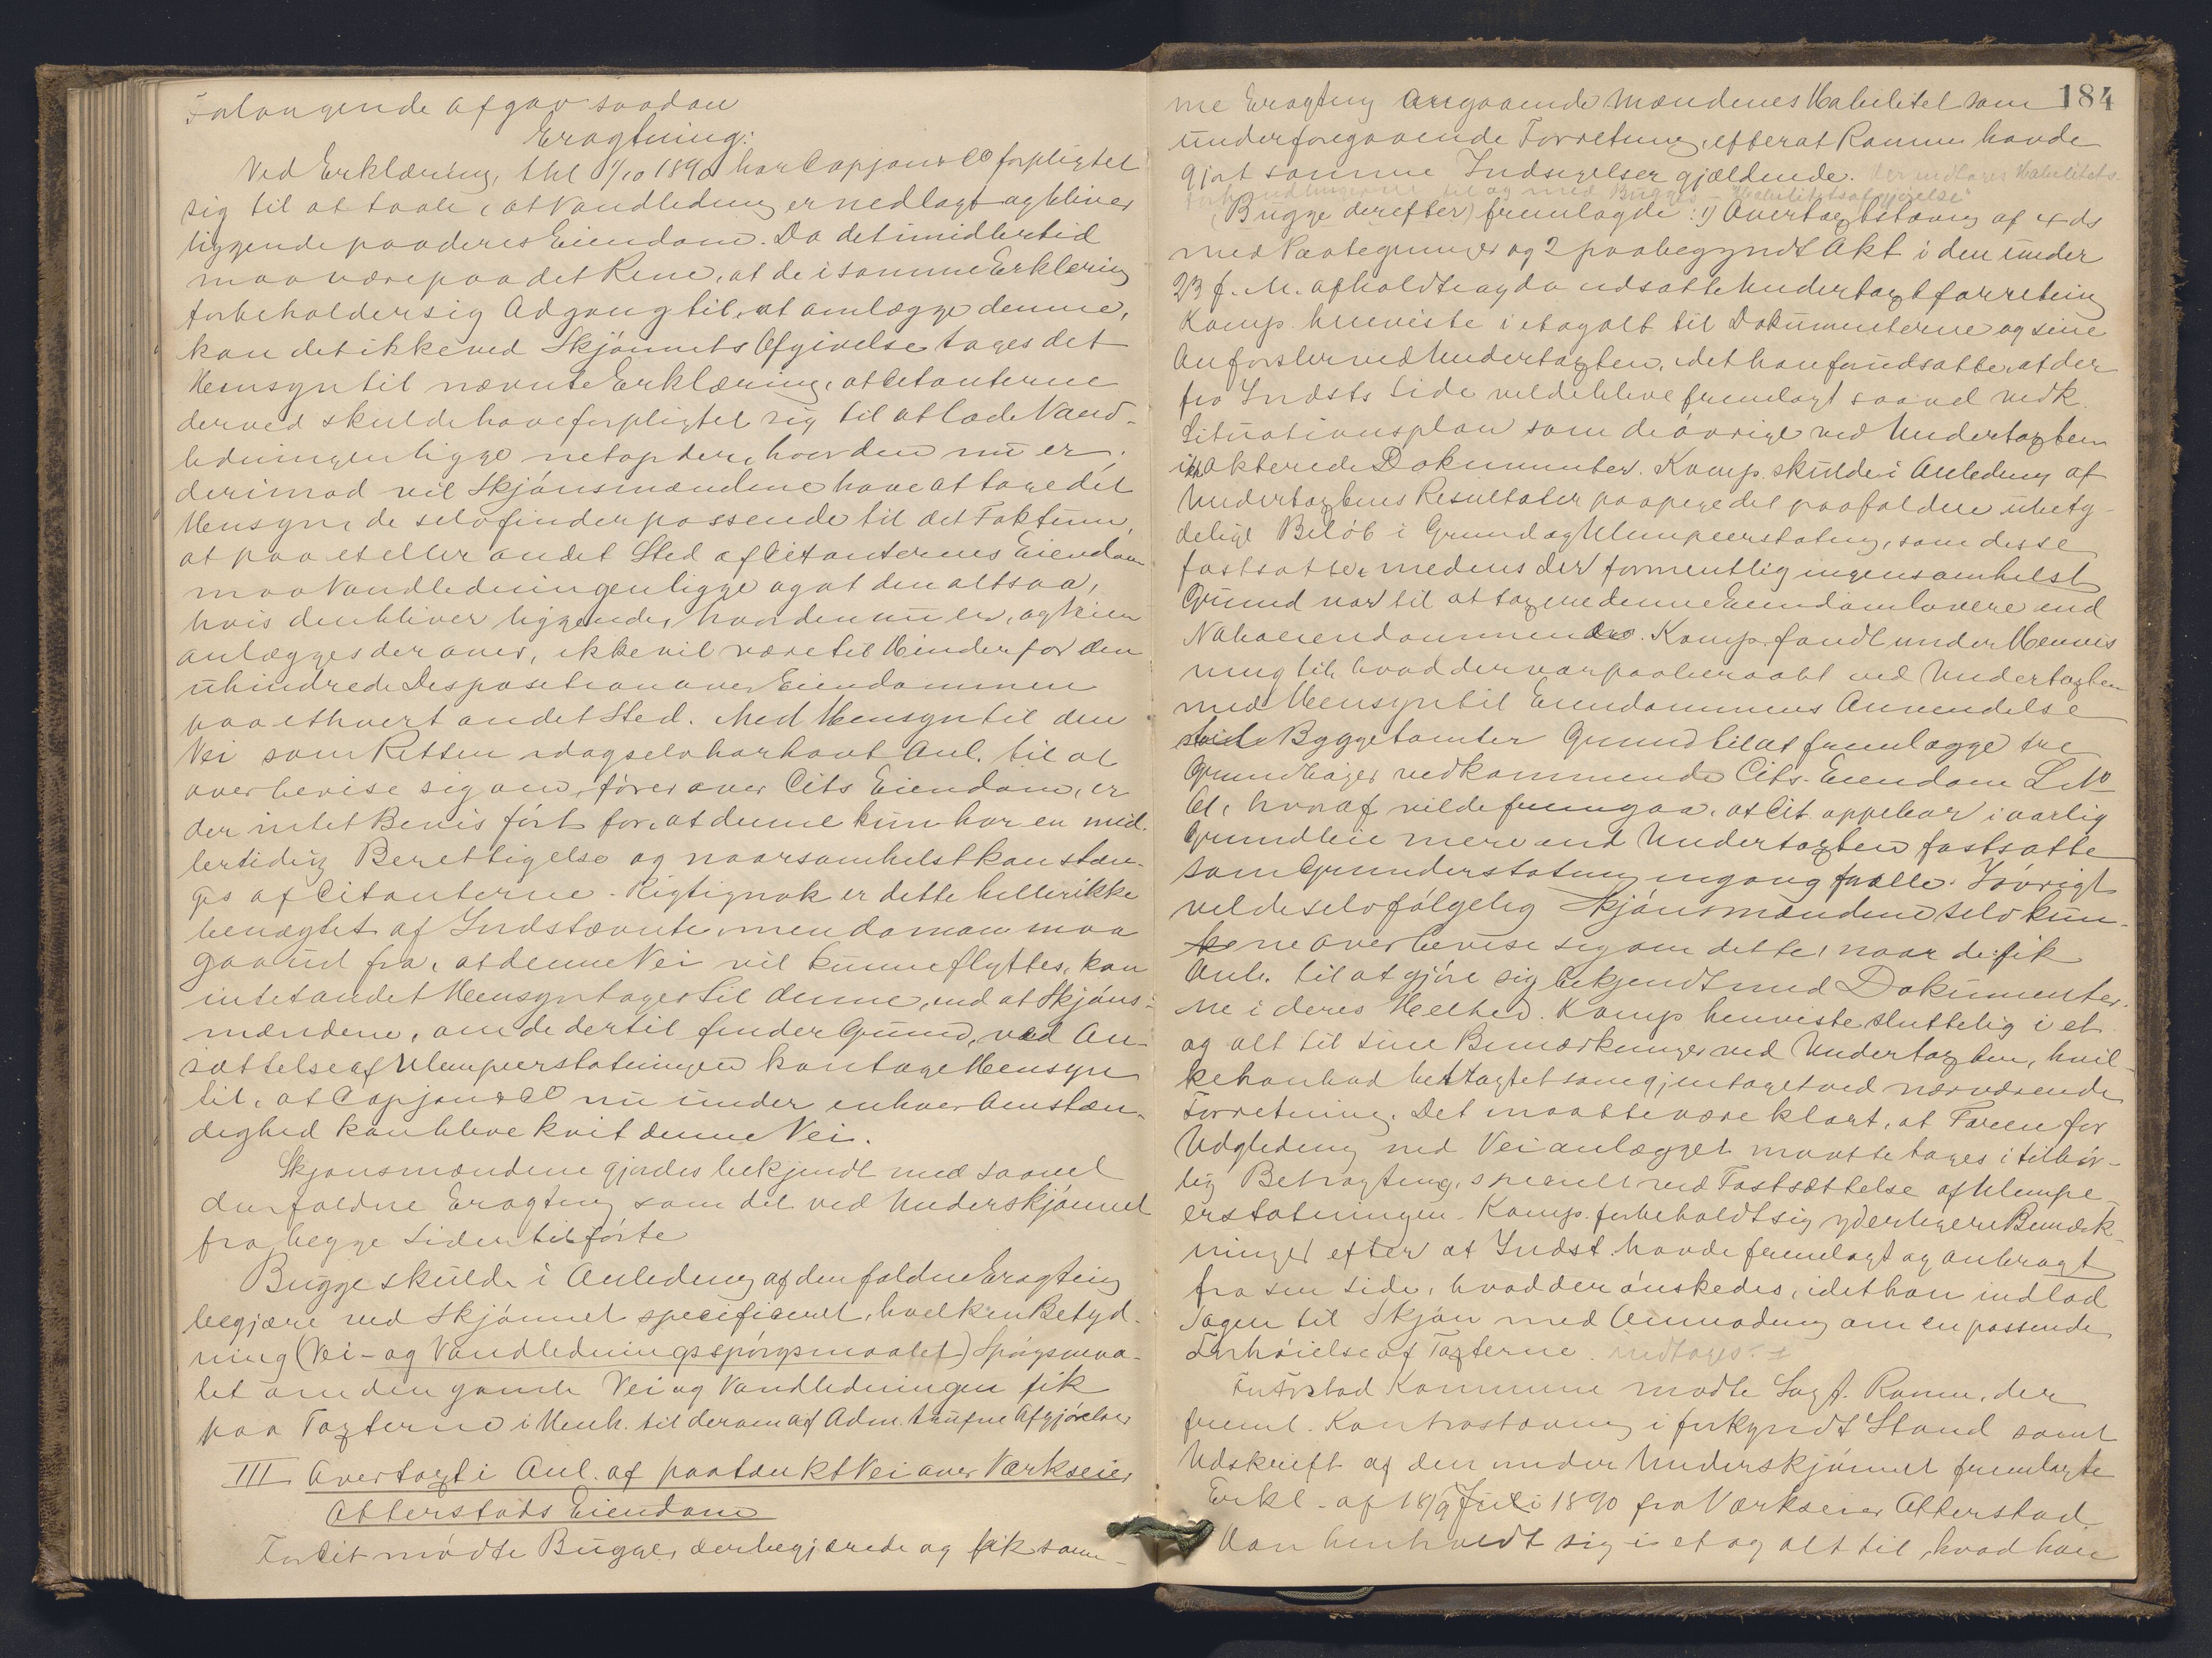 Forlangende afgav saadan
Eragtning:
Ved Erklæring, thl 1/10 1890 har Capjon & Co forpligtet
sig til at taale, at Vandledning er nedlagt og bliver
liggende paa deres Eiendom. Da det imidlertid
maa være paa det Rene, at de i samme Erklæring
forbeholder sig Adgang til, at omlægge denne,
kan det ikke ved Skjønnets Afgivelse tages det
Hensyn til nævnte Erklæring, at Citanterne
derved skulde have forpligtet sig til at lade Vand-
ledningen ligge netop der, hvor den nu er,
derimod vil Skjønsmændene have at tage det
Hensyn, de selv finder passende til det Faktum,
at paa et eller andet Sted af Citanternes Eiendom
maa Vandledningen ligge og at den altsaa,
hvis den bliver liggende, hvor den nu er, og Veien
anlægges derover, ikke vil være til Hinder for den
uhindrede Disposition over Eiendommen
paa ethvert andet Sted. Med Hensyn til den
Vei som Retten idag selv har havt Anl. til at
overbevise sig om, fører over Cits Eiendom, er
der intet Bevis ført for, at denne kun har en mid-
lertidig Berettigelse og naarsomhelst kan stæn-
ges af Citanterne. Rigtignok er dette heller ikke
benægtet af Indstævnte, men da man maa
gaa ud fra, at denne Vei vil kunne flyttes, kan
intet andet Hensyn tages til denne, end at Skjøns-
mændene, om de dertil finder Grund, ved An-
sættelse af Ulempeerstatningen kan tage Hensyn
til, at Capjon & Co nu under enhver Omstæn-
dighed kan blive kvit denne Vei.
Skjønsmændene gjordes bekjendt med saavel
den faldne Eragtning som det ved Underskjønnet
fra begge Sider tilførte
Bugge skulde i Anledning af den faldne Eragtning
begjære ved Skjønnet specificeret, hvilken Betyd-
ning (Vei- og Vandledningsspørgsmaalet) Spørgsmaa-
let om den gamle Vei og Vandledningen fik
paa Taxterne i Henh. til derom af Adm. trufne Afgjørelser
III Overtaxt i Anl. af paatænkt Vei over Værkseier
Atterstads Eiendom
For Cit mødte Bugge, der begjærede og fik sam-
184
me Eragtning angaaende Mændenes Habilitet som
under foregaaende Forretning, efterat Ramm havde
gjort samme Indsigelser gjældende. Her indtages Habilitets-
forhandlingerne til og med Bugges - Habilitetsafgjørelse
(Bugge derefter) fremlagde: 1) Overtaxtstævning af 4 ds
med Paategninger og 2 paabegyndt Akt i den under
23 f. M. afholdte og da udsatte Undertaxtforretning
Komp. henviste i et og alt til Dokumenterne og sine
Anførsler ved Undertaxten, idet han forudsatte, at der
fra Indsts Side vilde blive fremlagt saavel vedk.
Situationsplan som de øvrige ved Undertaxten
ikke akterede Dokumenter. Komp. skulde i Anledning af
Undertaxtens Resultater paapege det paafaldne ubety-
delige Beløb i Grund og Ulempeerstatning, som disse
fastsatte, medens der formentlig ingensomhelst
Grund var til at taxere denne Eiendom lavere end
Naboeiendommene. Komp. fandt under Henvis
ning til hvad der var paaberaabt ved Undertaxten
med Hensyn til Eiendommens Anvendelse
til Byggetomter Grund til at fremlægge tre
Grundbøger vedkommende Cits. Eiendom L. No
61, hvoraf vilde fremgaa, at Cit. oppebar i aarlig
Grundleie mere end Undertaxten fastsatte
som Grunderstatning engang for alle. Iøvrigt
vilde selvfølgelig Skjønsmændene selv kun-
ne overbevise sig om dette, naar de fik
Anl. til at gjøre sig bekjendt med Dokumenter-
ne i deres Helhed. Komp henviste sluttelig i et
og alt til sine Bemærkninger ved Undertaxten, hvil-
ke han bad betragtet som gjentaget ved nærværende
Forretning. Det maatte være klart, at Faren for
Udglidning ved Veianlægget maatte tages i tilbør-
lig Betragtning, specielt ved Fastsættelse af Ulempe-
erstatningen. Komp. forbeholdt sig yderligere Bemærk-
ninger efter at Indst. havde fremlagt og anbragt
fra sin Side, hvad der ønskedes, idet han indlod
Sagen til Skjøn med Anmodning om en passende
Forhøielse af Taxterne. indtages
For Kommune mødte Sagf. Ramm, der
freml. Kontrastævning i forkyndt Stand samt
Udskrift af den under Underskjønnet fremlagte
Erkl. af 18/9 Juli 1890 fra Værkseier Atterstad
Han henholdt sig i et og alt til, hvad han